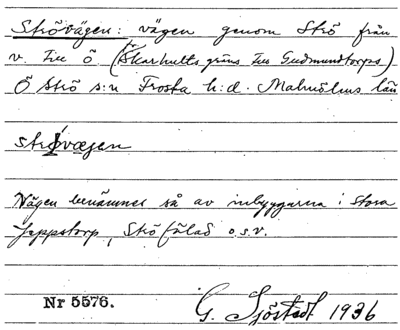 Strövägen: vägen genom Strö från
v. till ö. (Skarhults gräns till Gudmundtorps)
Ö Strö s:n Frosta h:d. Malmöhus län
strövægen
Vägen benämnes så av inbyggarna i Stora
Jeppstorp, Strö fälad o.s.v.
Nr 5576. G. Sjöstedt 1936